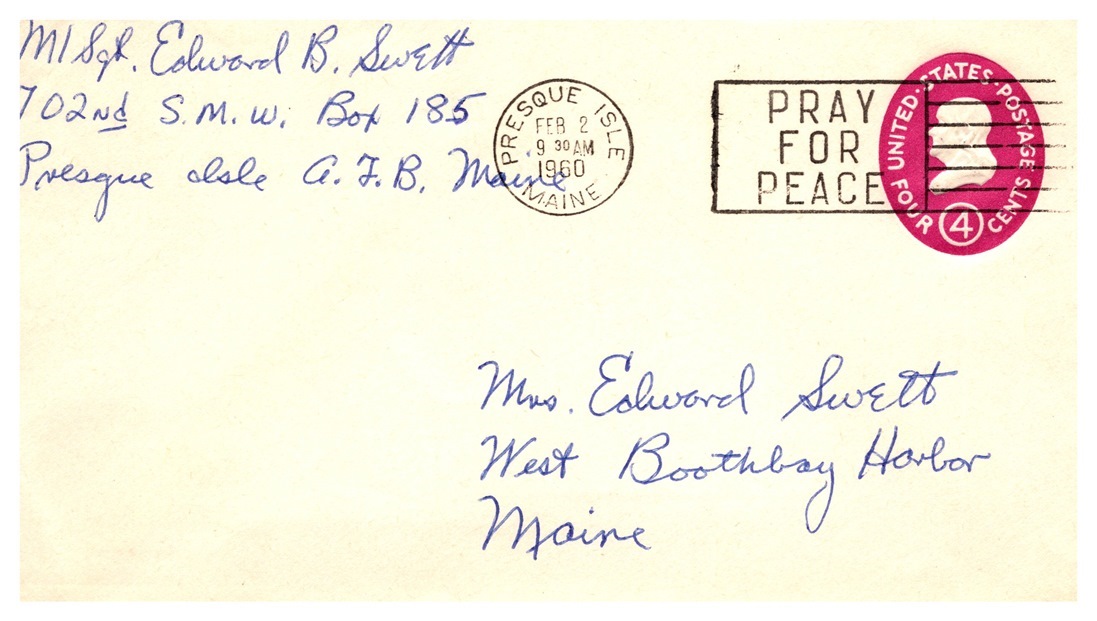 M/Sgt. Edward B. Swett
702nd S.M.W. Box 185
Presque Isle A.F.B. Maine
PRESQUE ISLE
FEB 2
9 30 AM
1960
MAINE
PRAY
FOR
PEACE
UNITED·STATES·POSTAGE
FOUR 4 CENTS
Mrs. Edward Swett
West Boothbay Harbor
Maine